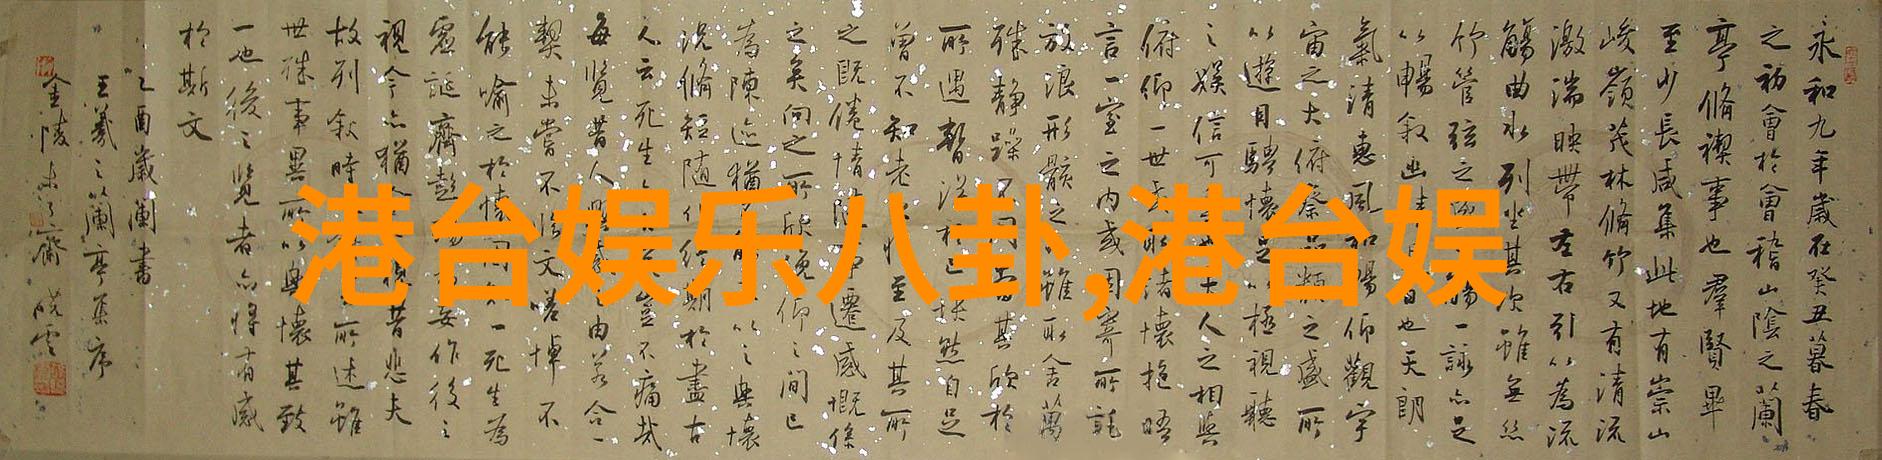 永和九年歲在癸丑暮春
之初會於會稽山陰之蘭
亭脩禊事也羣賢畢
至少長咸集此地有崇山
峻嶺茂林脩竹又有清流
激湍映帶左右引以為流
觴曲水列坐其次雖無絲
竹管弦之一觴一詠亦足
以暢敘幽情也天朗
氣清惠風和暢仰觀宇
宙之大俯察品類之盛所
以遊目騁懷足以極視聽
之娛信可人之相與
俯仰一世或取諸懷抱晤
言一室之內或因寄所託
放浪形骸之雖取舍萬
殊靜躁不同當其欣於
所遇暫得於己快然自足
曾不知老之將至及其所
之既倦情隨事遷感慨係
之矣向之所欣俛仰之間已
為陳迹猶以之興懷
況脩短隨化終期於盡古
人云死生亦大矣豈不痛哉
每覽昔人興感之由若合一
契未嘗不臨文嗟悼不
能喻之於懷固知一死生為
虛誕齊彭殤為妄作後之
視今亦猶今之視昔悲夫
故列敘時人所述雖
世殊事異所以興懷其致
一也後之覽者亦將有感
於斯文
乙酉歲蘭書
王羲之蘭亭集序
金陵
港台娱乐八卦,港台娱